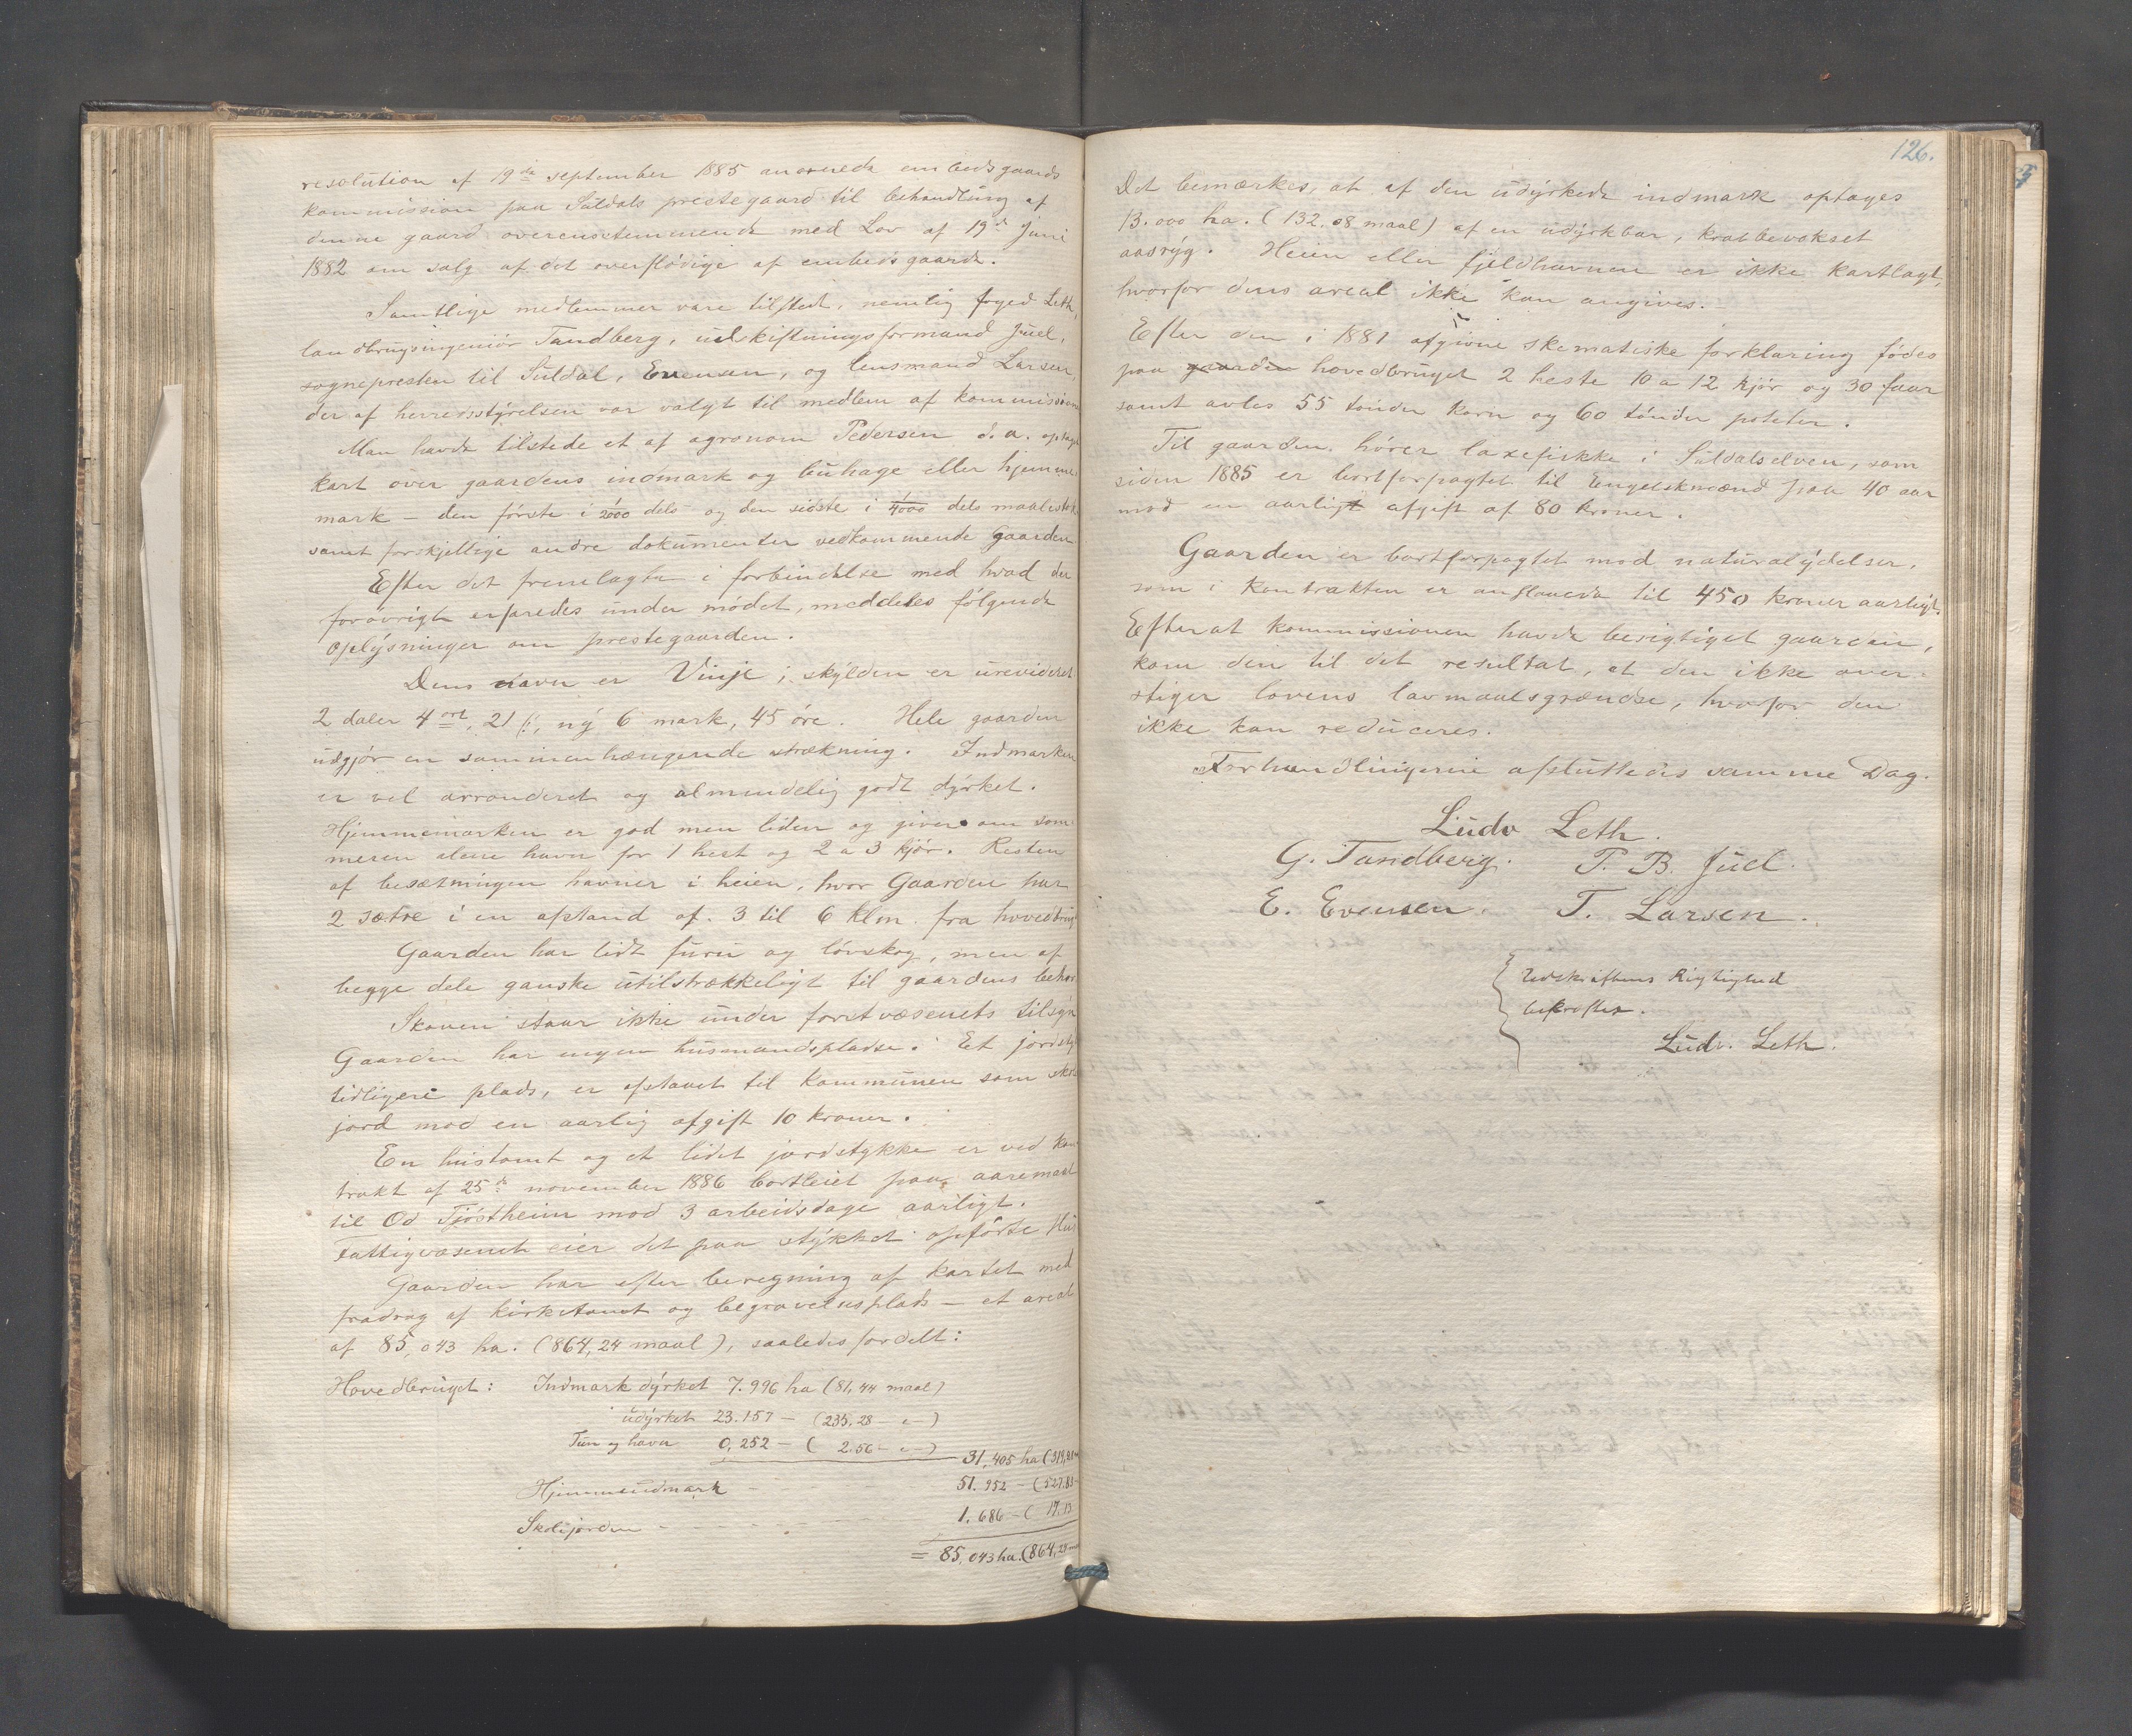 resolution af 19de september 1885 anordnede embedsgaards
kommission paa Suldals prestegaard til behandling af
denne gaard overensstemmende med Lov af 19de Juni
1882 om salg af det overflødige af embedsgaarde.
Samtlige medlemmer vare tilstede, nemlig foged Leth,
landbrugsingeniør Tandberg, udskiftningsformand Juel,
sognepresten til Suldal, Evensen, og lensmand Larsen,
der af herredsstyrelsen var valgt til medlem af kommissionen
Man havde tilstede et af agronom Pedersen d. a. optaget
kart over gaardens indmark og buhage eller hjemme-
mark – den første i 1/2000 dels og den sidste i 1/4000 dels maalestok
samt forskjellige andre dokumenter vedkommende Gaarden
Efter det fremlagte i forbindelse med hvad der
forøvrigt erfaredes under mødet, meddeles følgende
oplysninger om prestegaarden.
Dens navn er Vinje; skylden er urevideret
2 daler 4 ort, 21 ß, ny 6 mark, 45 øre. Hele gaarden
udgjør en sammenhængende strækning. Indmarken
er vel arronderet og almindelig godt dyrket.
Hjemmemarken er god men liden og giver om som-
meren alene havn for 1 hest og 2 a 3 kjør. Resten
af besætningen havner i heien, hvor Gaarden har
2 sætre i en afstand af 3 til 6 klm. fra hovedbrug
Gaarden har lidt furu og løvskog, men af
begge dele ganske utilstrækkeligt til gaardens behov
Skoven staar ikke under forstvæsenets tilsyn
Gaarden har ingen husmandspladse. Et jordsty
tidligere plads, er afstaaet til Kommunen som skole
jord mod en aarlig afgift 10 kroner.
En hustomt og et lidet jordstykke er ved kon
trakt af 25de november 1886 bortleiet paa aaremaal
til Od Tjøstheim mod 3 arbeidsdage aarligt.
Fattigvæsenet eier det paa stykket opførte Hus
Gaarden har efter beregning af kartet med
fradrag af kirketomt og begravelsesplads – et areal
af 85,043 ha. (864,24 maal), saaledes fordelt:
Hovedbruget: Indmark dyrket 7.996 ha (81,44 maal)
udyrket 23.157 – (235.28 – „ –)
Tun og havn 0,252 – ( 2.56 – „ –)
31,405 ha (319,28
Hjemmeudmark – – – – 51.952 – (527.83
Skolejorden – – – – 1.686 – ( 17,13
= 85,043 ha. (864,24 maal
126.
Det bemærkes, at af den udyrkede indmark optages
13.000 ha. (132,08 maal) af en udyrkbar, kratbevokset
aasryg. Heien eller fjeldhavnen er ikke kartlagt,
hvorfor dens areal ikke kan angives.
Efter den i 1881 afgivne skematiske forklaring fødes
paa gaarden hovedbruget 2 heste 10 a 12 kjør og 30 faar
samt avles 55 tønder korn og 60 tønder poteter.
Til gaarden hører laxefiske i Suldalselven, som
siden 1885 er bortforpagtet til Engelskmænd paa 40 aar
mod en aarligt afgift af 80 kroner.
Gaarden er bortforpagtet mod naturalydelser,
som i kontrakten er anslaaede til 450 kroner aarligt.
Efterat kommissionen havde besigtiget gaarden,
kom den til det resultat, at den ikke over-
stiger lovens lavmaalsgrændse, hvorfor den
ikke kan reduceres.
Forhandlingerne afsluttedes samme Dag.
Ludv Leth.
G. Tandberg. P. B. Juel.
E. Evensen. T. Larsen.
Udskriftens Rigtighed
bekræftes.
Ludv. Leth.